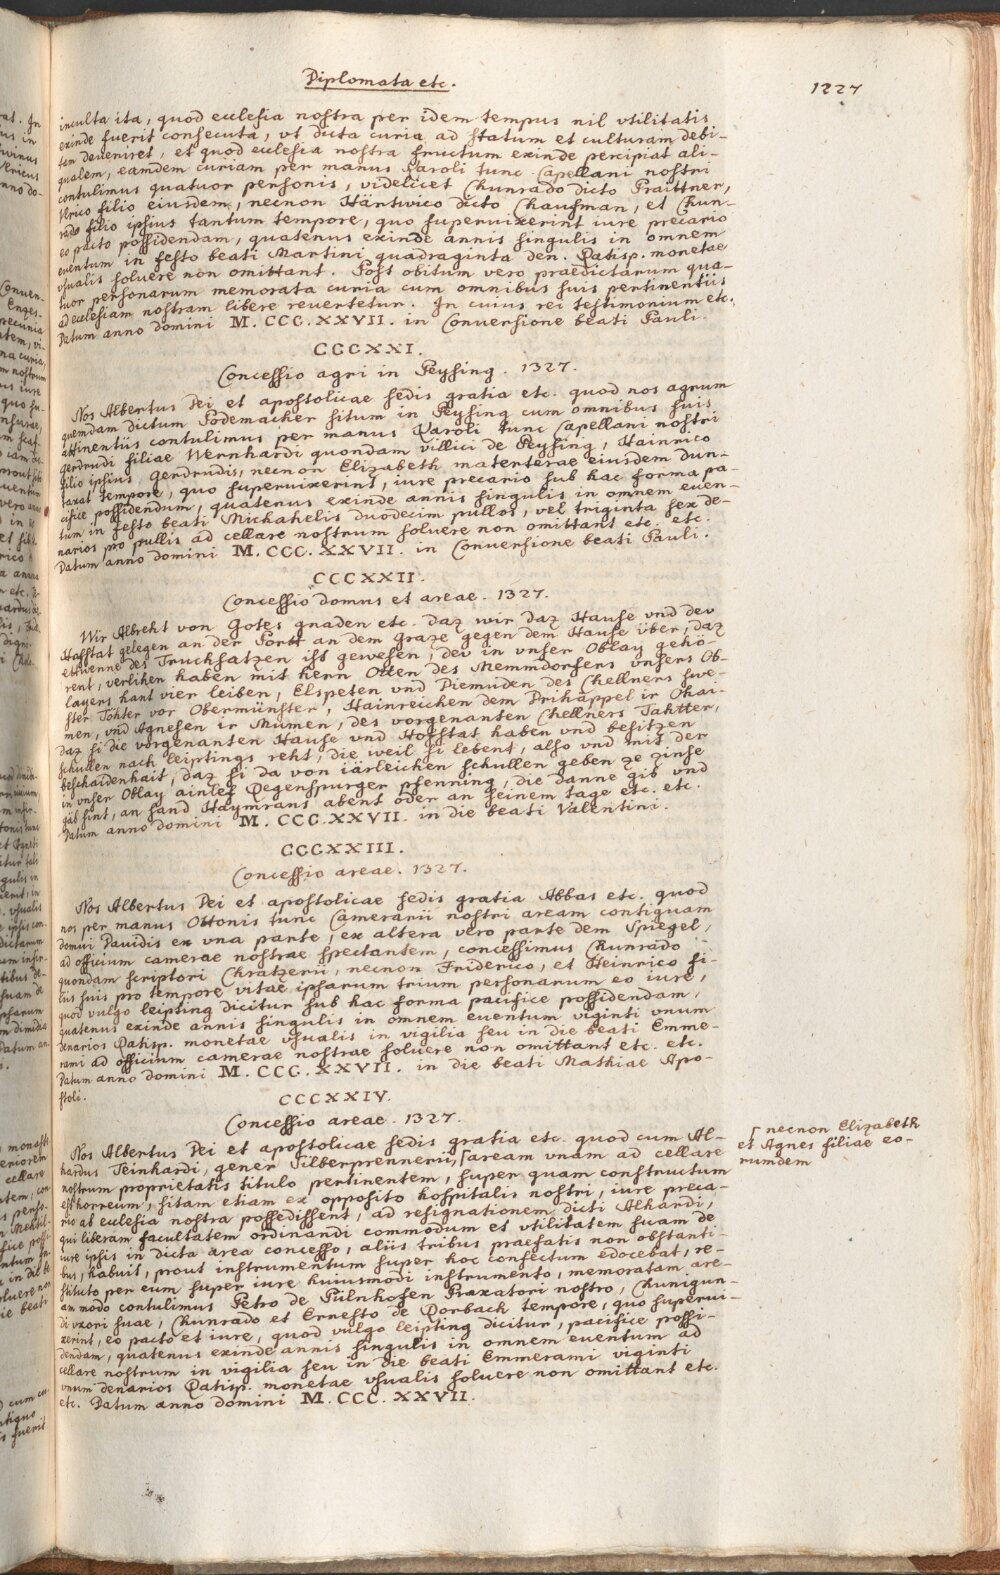 Diplomata etc.
1227
inculta ita, quod ecclesia nostra per idem tempus nil vtilitatis
exinde fuerit consecuta, vt dicta curia ad statum et culturam debi-
tum deveniret, et quod ecclesia nostra fructum exinde percipiat ali-
qualem, eamdem curiam per manus Karoli tunc Capellani nostri
contulimus quatuor personis, videlicet Chunrado dicto Praittner,
Vlrico filio eiusdem, necnon Hartwico dicto Chaufman, et Chun-
rado filio ipsius tantum tempore, quo superuixerint iure precario
eo pacto possidendam, quatenus exinde annis singulis in omnem
euentum in festo beati Martini quadraginta den. Ratisp. monetae
vsualis soluere non omittant. Post obitum vero praedictarum qua-
tuor personarum memorata curia cum omnibus suis pertinentiis
ad ecclesiam nostram libere reuertetur. In cuius rei testimonium etc.
Datum anno domini M. CCC. XXVII. in Conuersione beati Pauli.
CCCXXI.
Concessio agri in Peysing. 1327.
Nos Albertus Dei et apostolicae sedis gratia etc. quod nos agrum
quemdam dictum Podemacher situm in Peysing cum omnibus suis
attinentiis contulimus per manus Karoli tunc Capellani nostri
Gerdrudi filiae Wernhardi quondam villici de Peysing, Hainrico
filio ipsius, Gerdrudis, necnon Elizabeth matenterae eiusdem dun-
taxat tempore, quo superuixerint, iure precario sub hac forma pa-
cifice possidendum, quatenus exinde annis singulis in omnem euen-
tum in festo beati Michahelis duodecim pullos, vel triginta sex de-
narios pro pullis ad cellare nostrum soluere non omittant etc. etc.
Datum anno domini M. CCC. XXVII. in Conuersione beati Pauli.
CCCXXII.
Concessio domus et areae. 1327.
Wir Albreht von Gotes gnaden etc. daz wir daz Hause vnd dev
Hofstat gelegen an der Portt an dem Graze gegen dem Hause über, daz
ettwenne des Truchsatzen ist gewesen, dev in vnser Oblay geho-
rent, verlihen haben mit hern Otten des Memmdorfens vnsers Ob-
layers hant vier leiben, Elspeten vnd Diemuden des Chellners swe-
ster Tohter vor Obermünster, Hainreichen dem Prihappel ir Ohai-
men, vnd Agnesen ir Mumen, des vorgenanten Chellners Tahtter,
daz si die vorgenanten Hause vnd Hofstat haben vnd besitzen
schullen nach leiptings reht, die weil si lebent, also vnd mit der
beschaidenhait, daz si da von iärleichen schullen geben ze zinse
in vnser Oblay ainlef Regenspurger pfenning, die danne gib vnd
gäb sint, an sand Haymrans abent oder an seinem tage etc. etc.
Datum anno domini M. CCC. XXVII. in die beati Valentini.
CCCXXIII.
Concessio areae. 1327.
Nos Albertus Dei et apostolicae sedis gratia Abbas etc. quod
nos per manus Ottonis tunc Camerarii nostri aream contiguam
domui Dauidis ex vna parte, ex altera vero parte dem Spiegel,
ad officium camerae nostrae spectantem, concessimus Chunrado
quondam scriptori Chratzerii, necnon Friderico, et Heinrico fi-
liis suis pro tempore vitae ipsarum trium personarum eo iure,
quod vulgo leipting dicitur sub hac forma pacifice possidendam,
quatenus exinde annis singulis in omnem euentum viginti vnum
denarios Ratisp. monetae vsualis in vigilia seu in die beati Emme-
rami ad officium camerae nostrae soluere non omittant etc. etc.
Datum anno domini M. CCC. XXVII. in die beati Mathiae Apo-
stoli.
CCCXXIV.
Concessio areae. 1327.
Nos Albertus Dei et apostolicae sedis gratia etc. quod cum Al-
hardus Teinhardi, gener Silberprennerii, [aream vnam ad cellare
nostrum proprietatis titulo pertinentem, super quam constructum
est horreum, sitam etiam ex opposito hospitalis nostri, iure preca-
rio ab ecclesia nostra possedissent, ad resignationem dicti Alhardi,
qui liberam facultatem ordinandi commodum et vtilitatem suam de
iure ipsis in dicta area concesso, aliis tribus praefatis non obstanti-
bus, habuit, prout instrumentum super hoc confectum edocebat, re-
stituto per eum super iure huiusmodi instrumento, memoratam are-
am modo contulimus Petro de Pülnhofen Praxatori nostro, Chunigun-
di vxori suae, Chunrado et Ernesto de Dorback tempore, quo superui-
xerint, eo pacto et iure, quod vulgo leipting dicitur, pacifice possi-
dendam, quatenus exinde annis singulis in omnem euentum ad
cellare nostrum in vigilia seu in die beati Emmerami viginti
vnum denarios Ratisp. monetae vsualis soluere non omittant etc.
etc. Datum anno domini M. CCC. XXVII.
[ necnon Elizabeth
et Agnes filiae eo-
rumdem